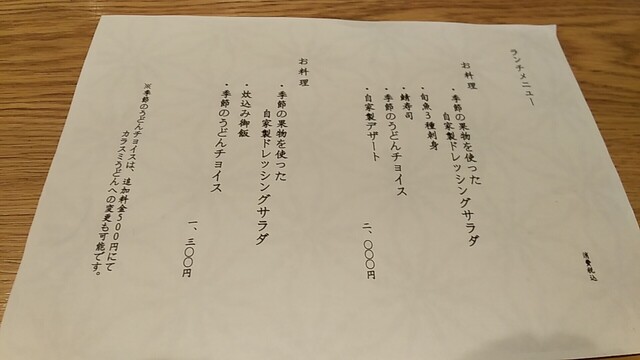 ランチメニュー
消費税込
お料理
・季節の果物を使った
自家製ドレッシングサラダ
・旬魚3種刺身
・鯖寿司
・季節のうどんチョイス
・自家製デザート
二、〇〇〇円
お料理
・季節の果物を使った
自家製ドレッシングサラダ
・炊込み御飯
・季節のうどんチョイス
一、三〇〇円
※季節のうどんチョイスは、追加料金500円にて
カラスミうどんへの変更も可能です。